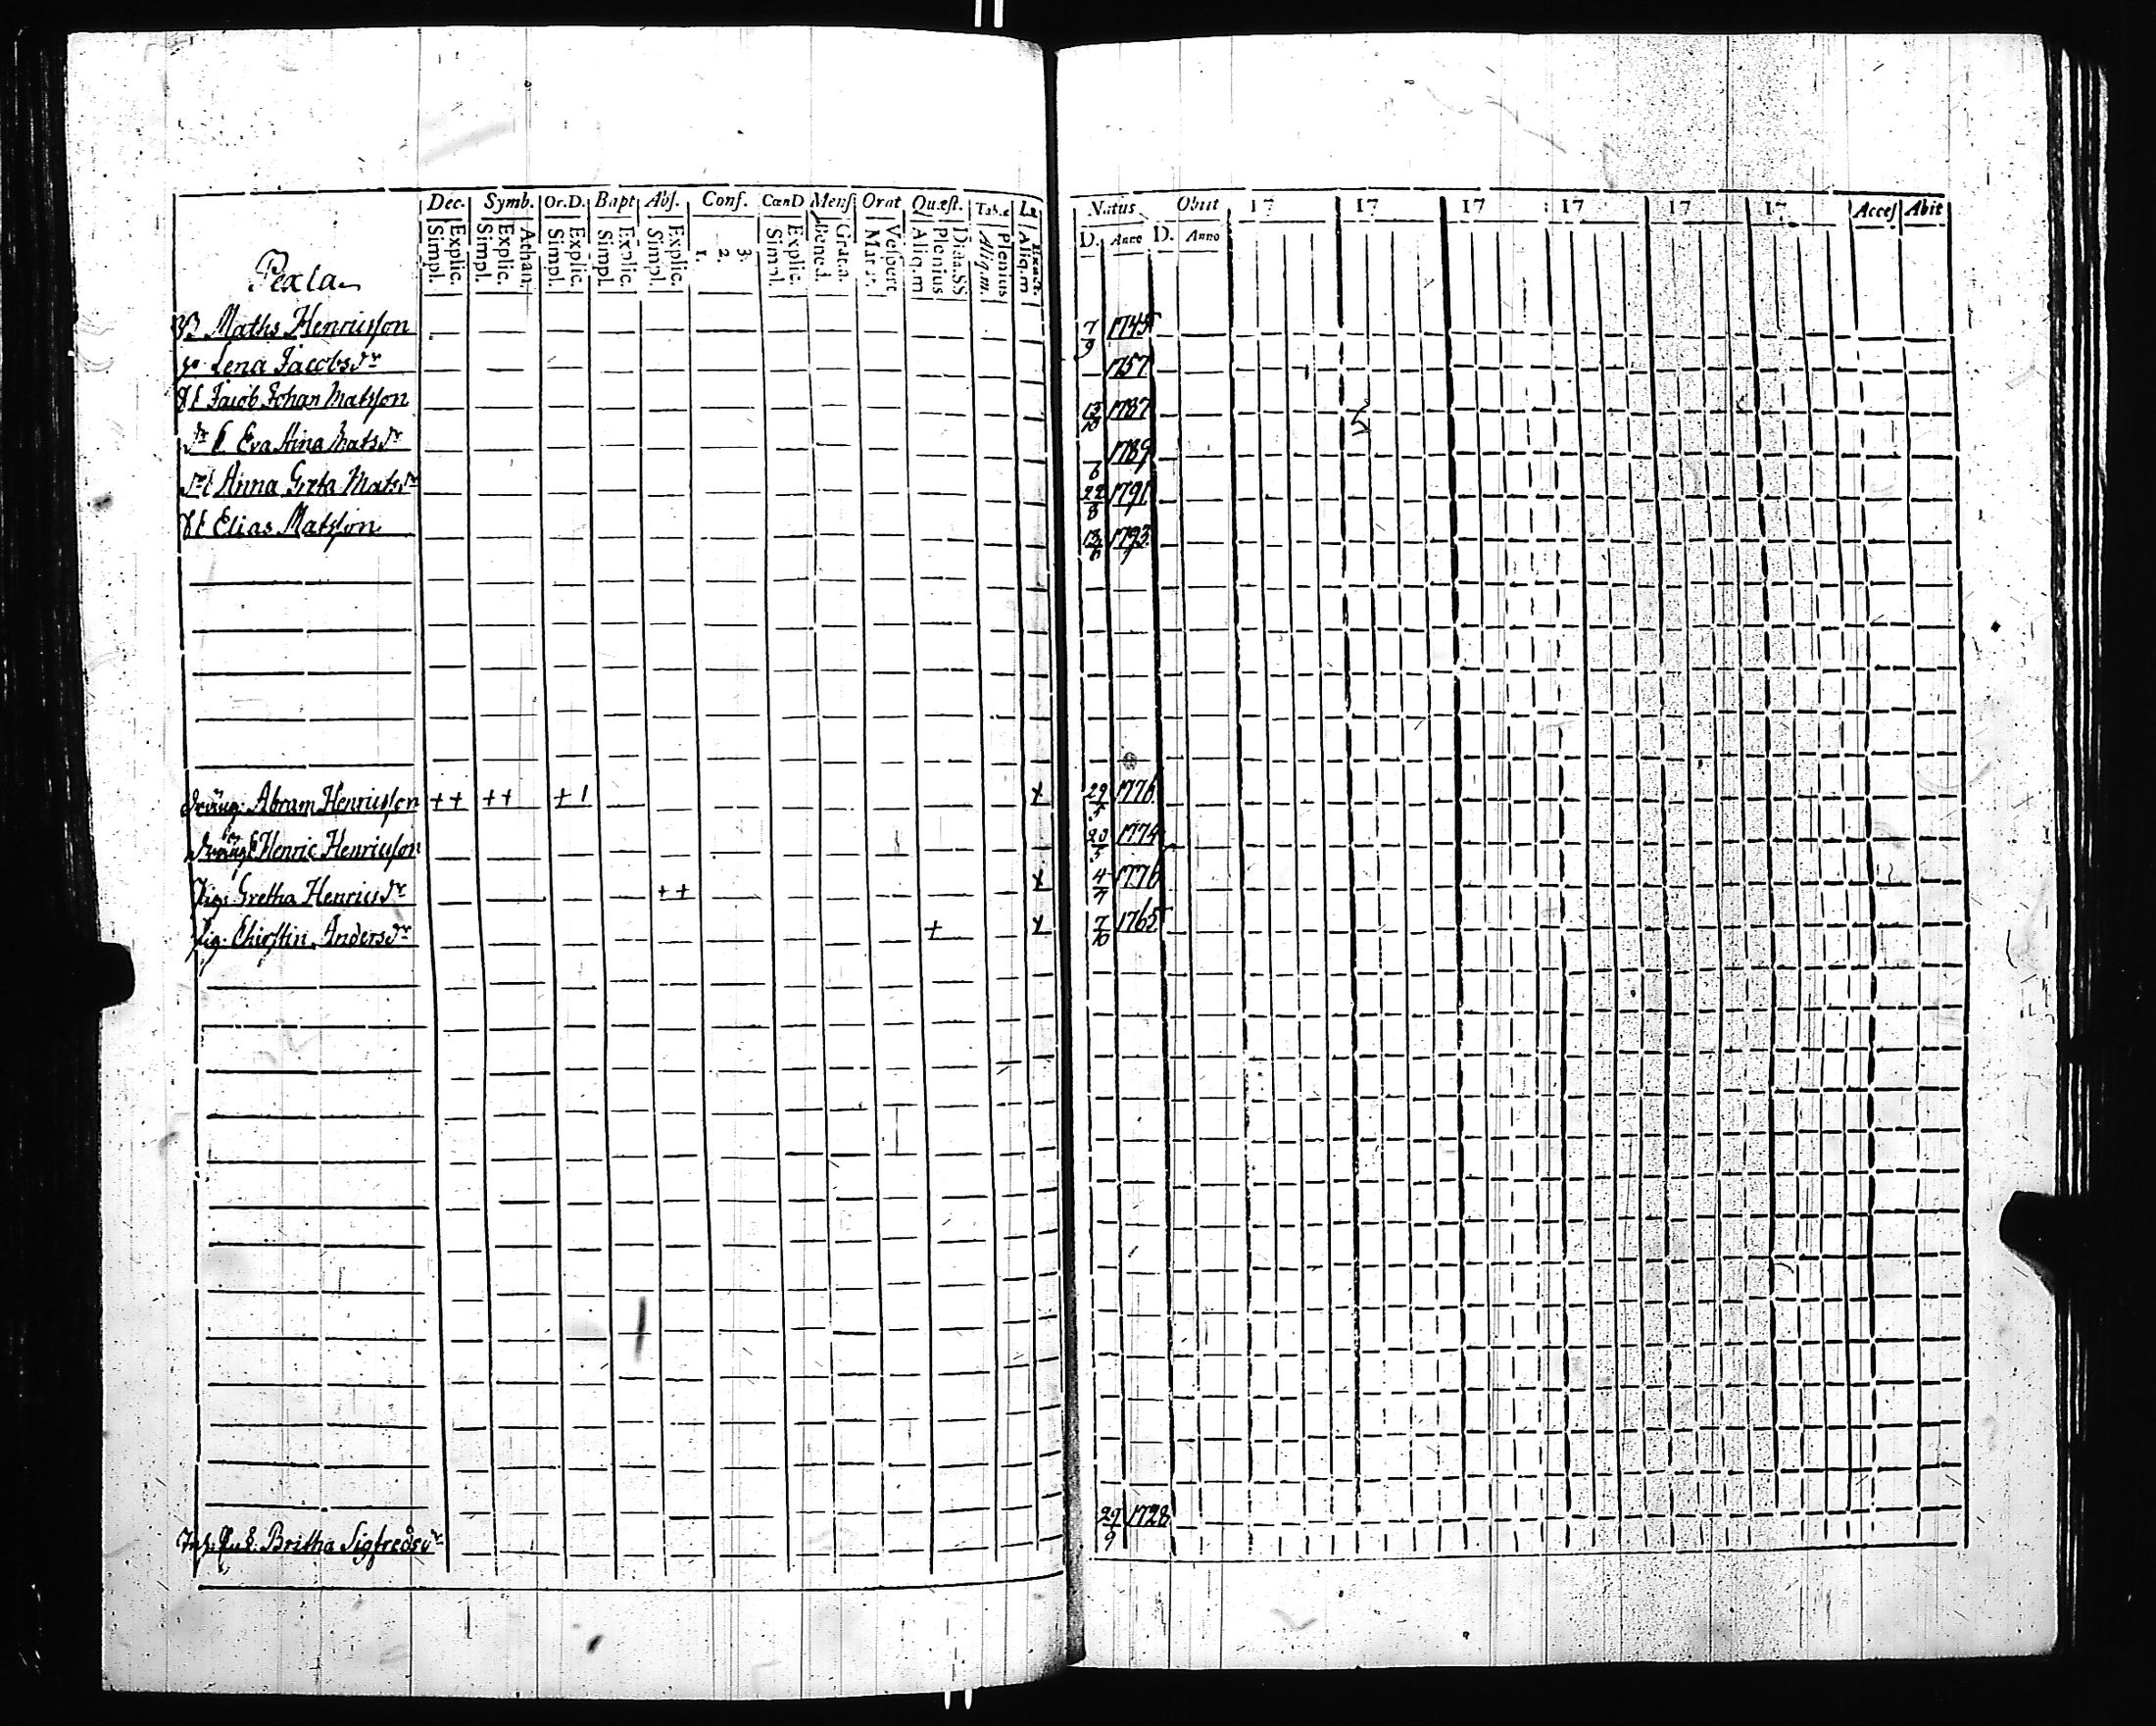 Dec. Symb. Or.D. Bapt Abs. Conf. CœnD Mens Orat Quæst. Tab.æ
Simpl. Explic. Simpl. Explic. Athan. Simpl. Explic. Simpl. Explic. Simpl. Explic. 1. 2. 3. Simpl. Explic. Bened. Grat.a. Aliq.m Plenius Aliq.m. Plenius Aliq.m
Natus Obiit 17 17 17 17 17 17 Acces Abit
D. Anno D. Anno
Pexla
Maths Henricsson 7/9 1745
Lena Jacobsdr 1757
Jacob Johan Matsson 13/10 1787
dr Eva Stina Matsdr 6 1789
dr Anna Greta Matsdr 22/8 1791
Elias Matsson 13/6 1793
dräng: Abram Henricsson ++ ++ + 1 x 29/5 1776
Henric Henricsson 20/5 1774
Pig: Gretha Henricsdr ++ x 4/7 1776
Pig. Chirstin Andersdr + x 7/10 1765
Britha Sigfredsdr 29/9 1728